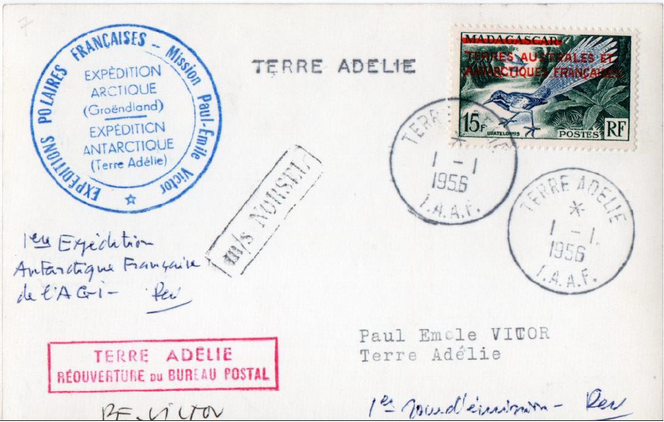 EXPÉDITIONS POLAIRES FRANÇAISES - Mission Paul-Emile Victor
EXPÉDITION
ARCTIQUE
(Groënland)
EXPÉDITION
ANTARCTIQUE
(Terre Adélie)
TERRE ADELIE
MADAGASCAR
TERRES AUSTRALES ET
ANTARCTIQUES FRANÇAISES
15F
URATELORNIS
POSTES RF
TERRE ADELIE
1 - 1
1956
T.A.A.F.
TERRE ADELIE
1 - 1.
1956
T.A.A.F.
m/s NORSEL
1ere Expédition
Antarctique Française
de l'AGI - Pev
TERRE ADÉLIE
RÉOUVERTURE DU BUREAU POSTAL
Paul Emole VITOR
Terre Adélie
P.E. VICTOR
1er Jour d'émission - Pev